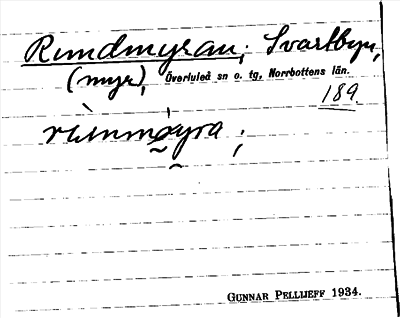 Rundmyran; Svartbyn,
(myr), Överluleå sn o. tg, Norrbottens län.
189
GUNNAR PELLIJEFF 1934.